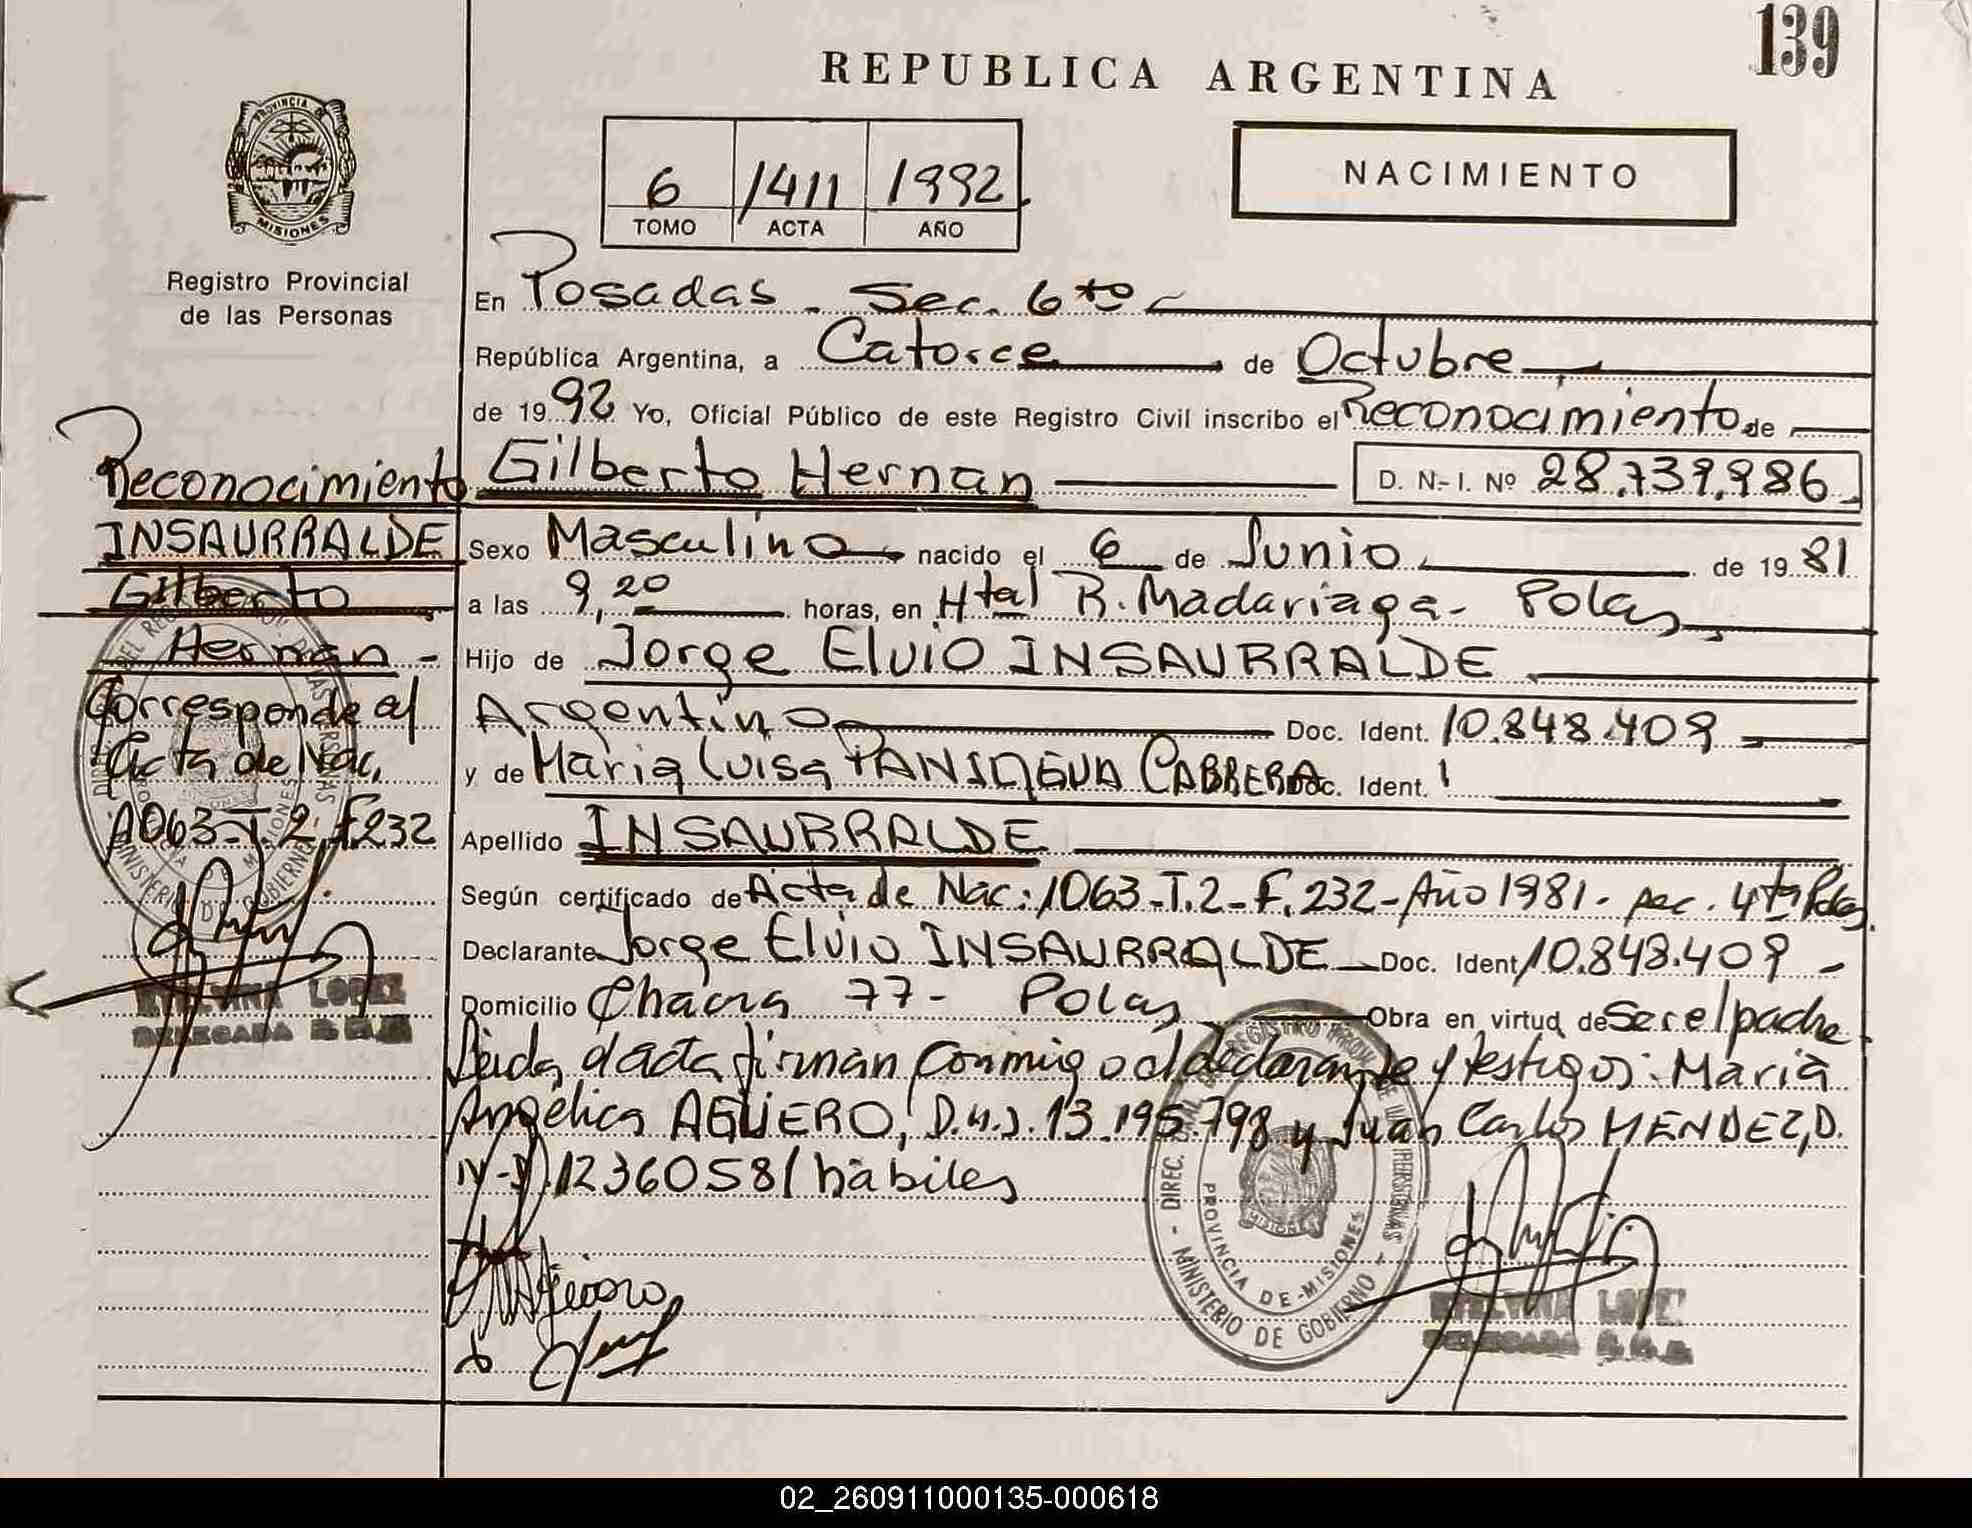 139
REPUBLICA ARGENTINA
PROVINCIA DE
MISIONES
Registro Provincial
de las Personas
6 1411 1992
TOMO ACTA AÑO
NACIMIENTO
En Posadas - Sec. 6ta
República Argentina, a Catorce de Octubre
de 1992 Yo, Oficial Público de este Registro Civil inscribo el Reconocimiento de
Gilberto Hernan D.N.-I. Nº 28.739.986
Sexo Masculino nacido el 6 de Junio de 1981
a las 9,20 horas, en Htal R. Madariaga - Pdas
Hijo de Jorge Elvio INSAURRALDE
Argentino Doc. Ident. 10.848.409
y de Maria Luisa PANIAGUA CABRERA Doc. Ident.
Apellido INSAURRALDE
Según certificado de Acta de Nac: 1063-T.2-F.232-Año 1981- sec. 4ta Pdas.
Declarante Jorge Elvio INSAURRALDE Doc. Ident 10.848.409 -
Domicilio Chacra 77- Pdas Obra en virtud de Ser el padre.
Leida el acta firman conmigo el declarante y testigos: Maria
Angélica AGUERO, D.N.I. 13.195.798 y Juan Carlos MENDEZ, D.
N-I 12360581 hábiles
Reconocimiento
INSAURRALDE
Gilberto
Hernan -
Corresponde al
Acta de Nac.
1063-T.2.F.232
ETELVINA LOPEZ
DELEGADA
PROVINCIA DE MISIONES
MINISTERIO DE GOBIERNO
ETELVINA LOPEZ
DELEGADA
02_260911000135-000618